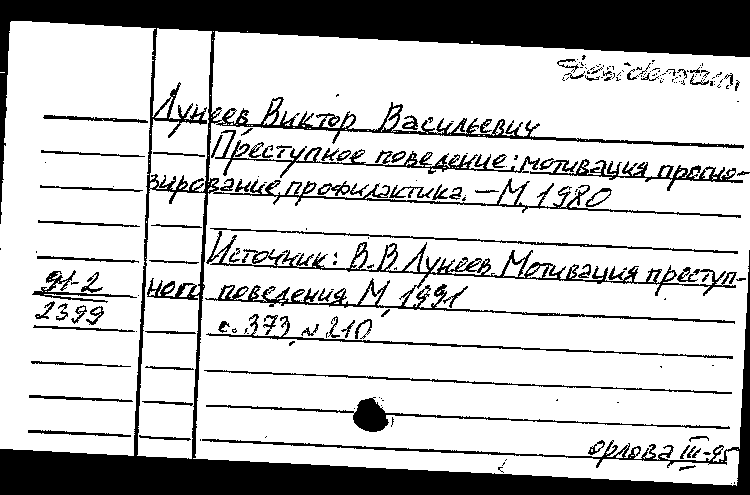 Desideratum
Лунеев, Виктор Васильевич
Преступное поведение: мотивация, прогно-
зирование, профилактика. – М, 1980
Источник: В.В. Лунеев. Мотивация преступ-
91-2
ного поведения. М, 1991
2399
с. 373, № 210
орлова, III-95